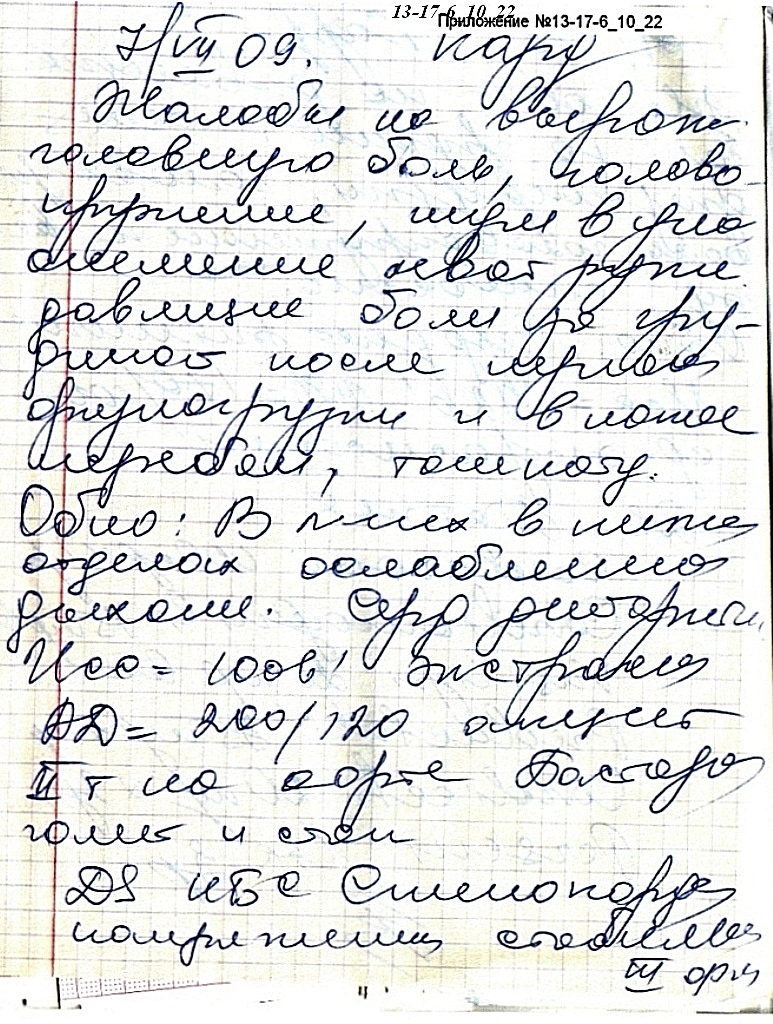 13-17-6_10_22
Приложение №13-17-6_10_22
VII 09. кард
Жалобы на выраж
головную боль, голово
кружение, шум в ушах
онемение левой руки
давящие боли за гру-
диной после
физнагрузки и в покое
тошноту.
Обно: В лёгких в нижн
отделах ослабленное
дыхание. Серд
ЧСС= 100 в 1' экстрас
АД= 200/120 акцент
II т на аорте Пастозн
голен и стоп
DS ИБС Стенокардия
напряжения стабильная
III ф